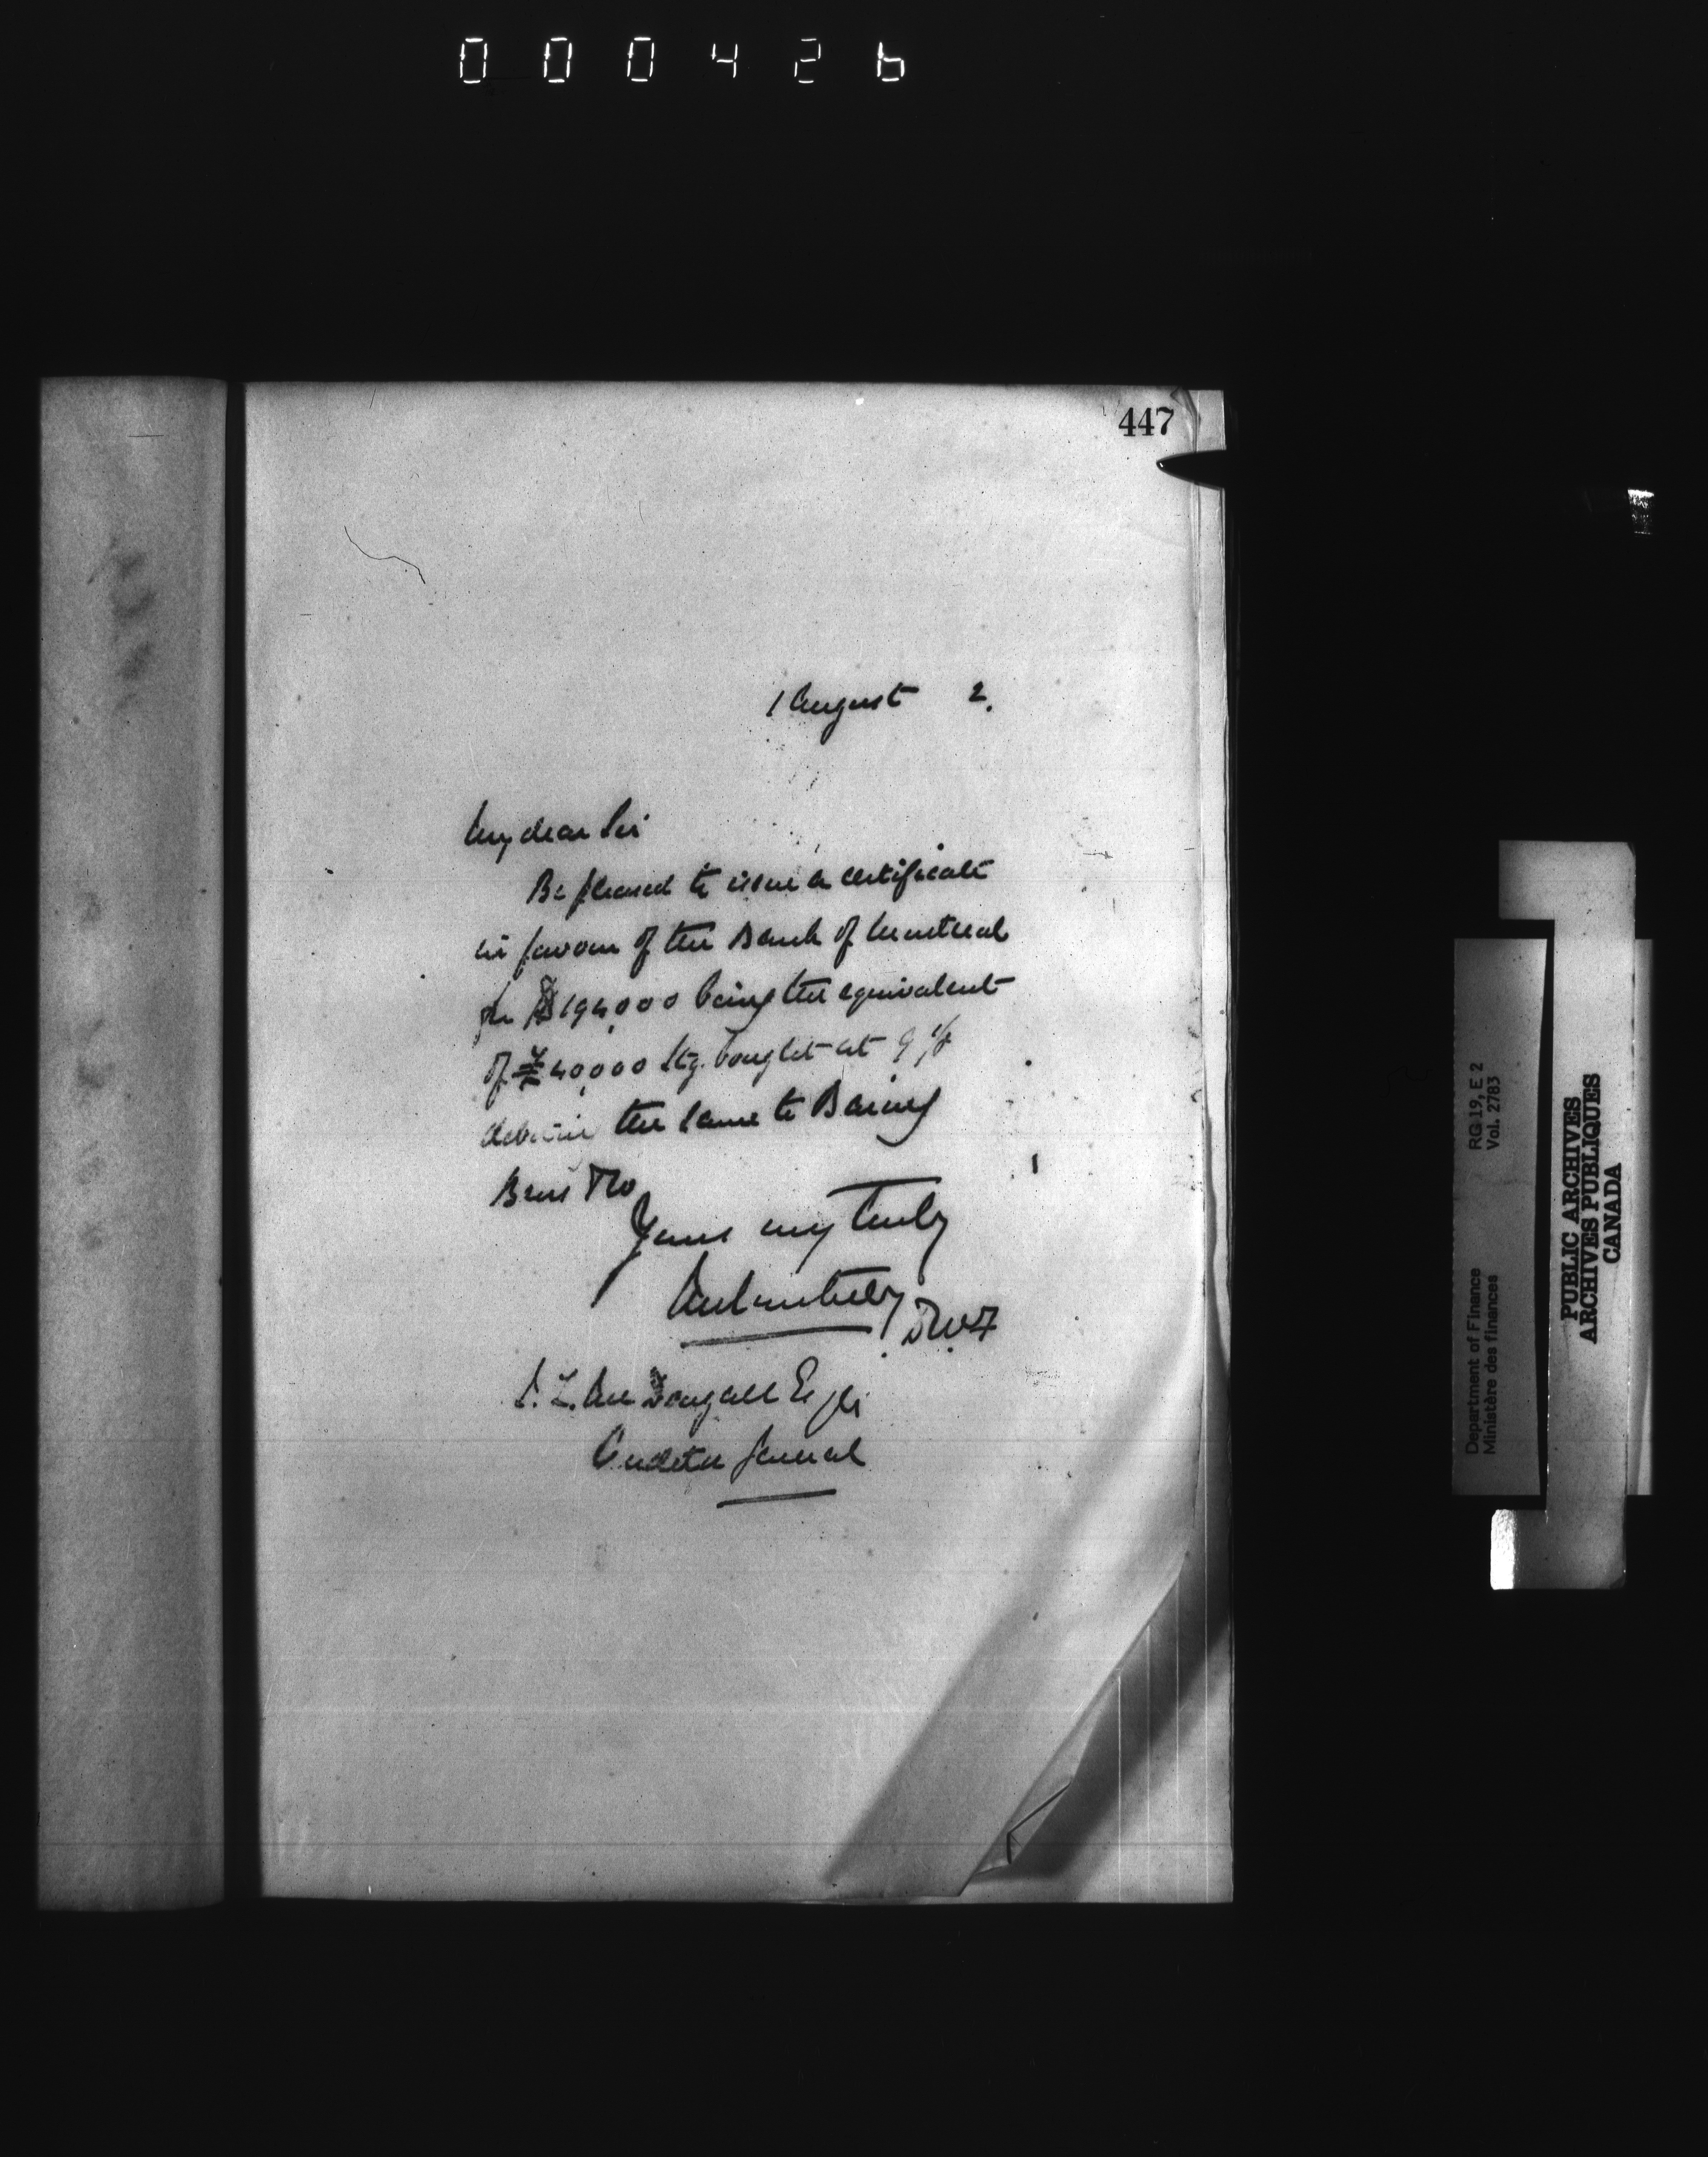 000426
447
1 August 2.
My dear Sir
Be pleased to issue a certificate
in favour of the Bank of Montreal
for $194,000 being the equivalent
of £40,000 Stg. bought at 9 1/8
the same to Baring
Bros & Co
Yours very truly
J. L. McDougall Esqr
Auditor General
RG 19, E 2
Vol. 2783
Department of Finance
Ministère des finances
PUBLIC ARCHIVES
ARCHIVES PUBLIQUES
CANADA